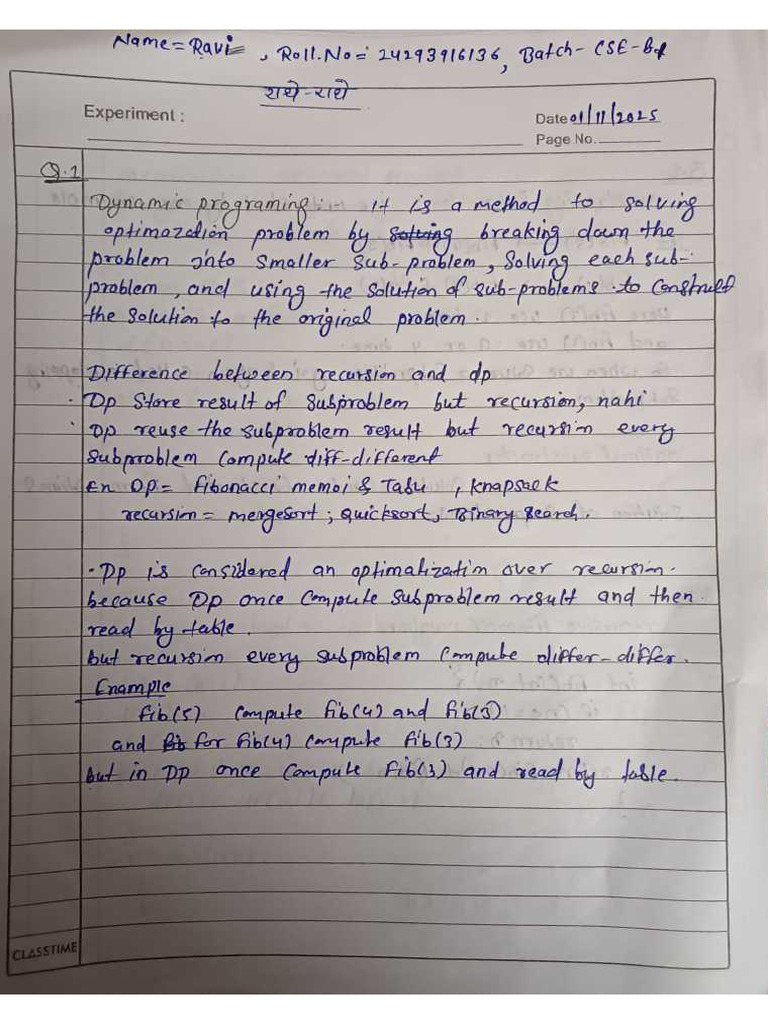 Name = Ravi, Roll.No = 24293916136, Batch - CSE-B1
राधे-राधे
Experiment :
Date 01/11/2025
Page No.
Q.1
Dynamic programing :- it is a method to solving
optimazation problem by solving breaking down the
problem into smaller sub-problem, solving each sub-
problem, and using the solution of sub-problems to construct
the solution to the original problem.
Difference between recursion and dp
· Dp store result of subproblem but recursion, nahi
· Dp reuse the subproblem result but recursion every
subproblem compute diff-different
En Dp = fibonacci memoi & Tabu, knapsack
recursion = mergesort; quicksort, Binary search.
· Dp is considered an optimalization over recursion.
because Dp once compute subproblem result and then
read by table.
but recursion every subproblem compute differ-differ.
Enample
fib(5) compute fib(4) and fib(3)
and fib for fib(4) compute fib(3)
but in Dp once compute fib(3) and read by table.
CLASSTIME